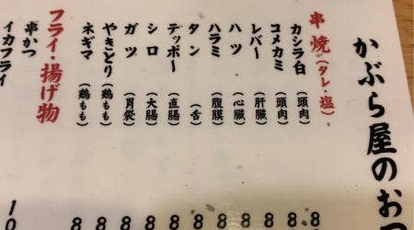 かぶら屋のお
串焼(タレ・塩)
カシラ白(頭肉)8
コメカミ(頭肉)8
レバー(肝臓)8
ハツ(心臓)8
ハラミ(腹膜)8
タン(舌)8
テッポー(直腸)8
シロ(大腸)8
ガツ(胃袋)8
やきとり(鶏もも)8
ネギマ(鶏もも)8
フライ・揚げ物
串かつ
イカフライ
10